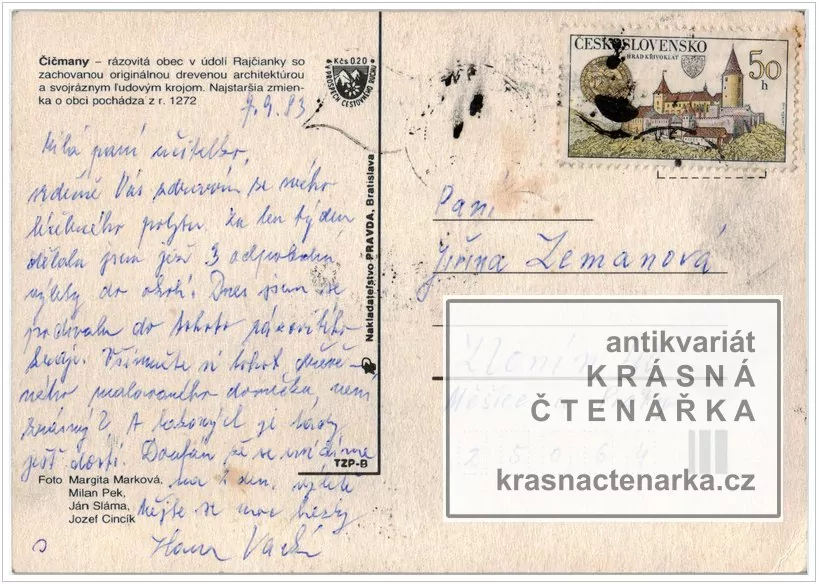 Čičmany – rázovitá obec v údolí Rajčianky so
zachovanou originálnou drevenou architektúrou
a svojráznym ľudovým krojom. Najstaršia zmien-
ka o obci pochádza z r. 1272
7.9.83
Milá paní učitelko,
srdečně Vás zdravím ze svého
léčebného pobytu. Za ten týden
dělala jsem již 3 odpolední
výlety do okolí. Dnes jsem se
podívala do tohoto rázovitého
kraje. Všimněte si tohoto dřevě-
ného malovaného domečku, není
krásný? A takových je tady
ještě dosti. Doufám, že se uvidíme
na 1 den.
Mějte se moc hezky
Hana
Foto Margita Marková,
Milan Pek,
Ján Sláma,
Jozef Cincík
Kčs 0.20
Nakladateľstvo PRAVDA, Bratislava
TZP-B
ČESKOSLOVENSKO
HRAD KŘIVOKLÁT
50
h
Paní
Jiřina Zemanová
Zlonín
Měšice
2 5 0 6 4
antikvariát
KRÁSNÁ
ČTENÁŘKA
krasnactenarka.cz